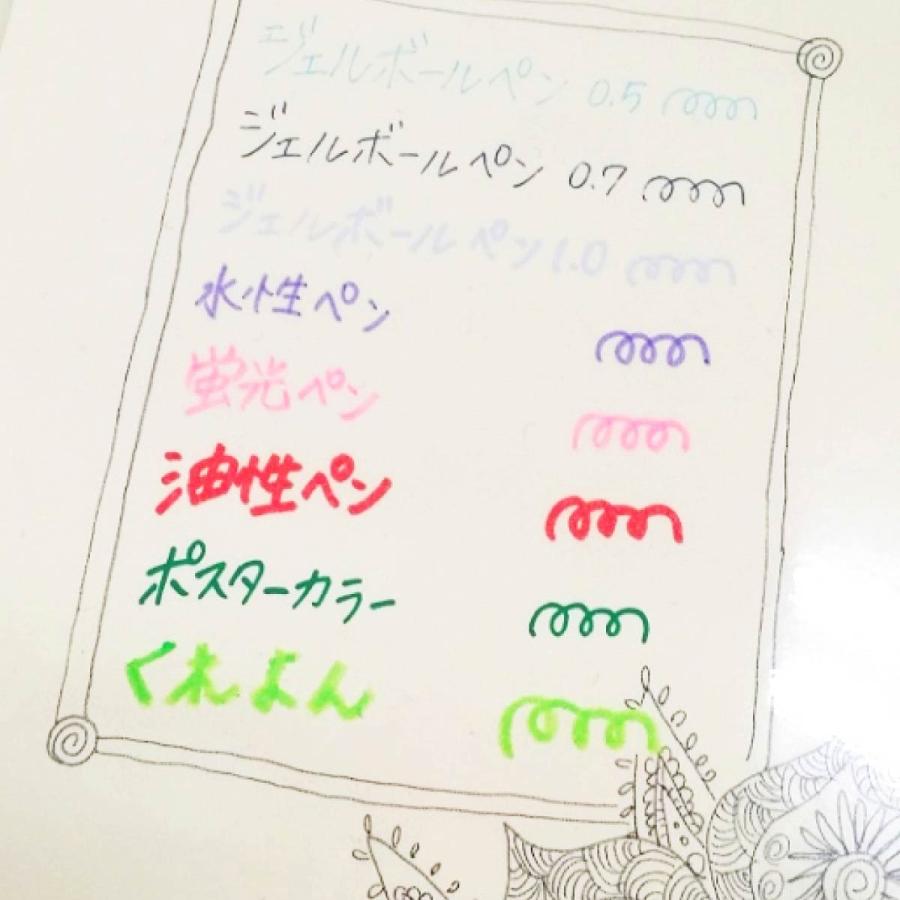 ジェルボールペン 0.5
ジェルボールペン 0.7
ジェルボールペン 1.0
水性ペン
蛍光ペン
油性ペン
ポスターカラー
くれよん